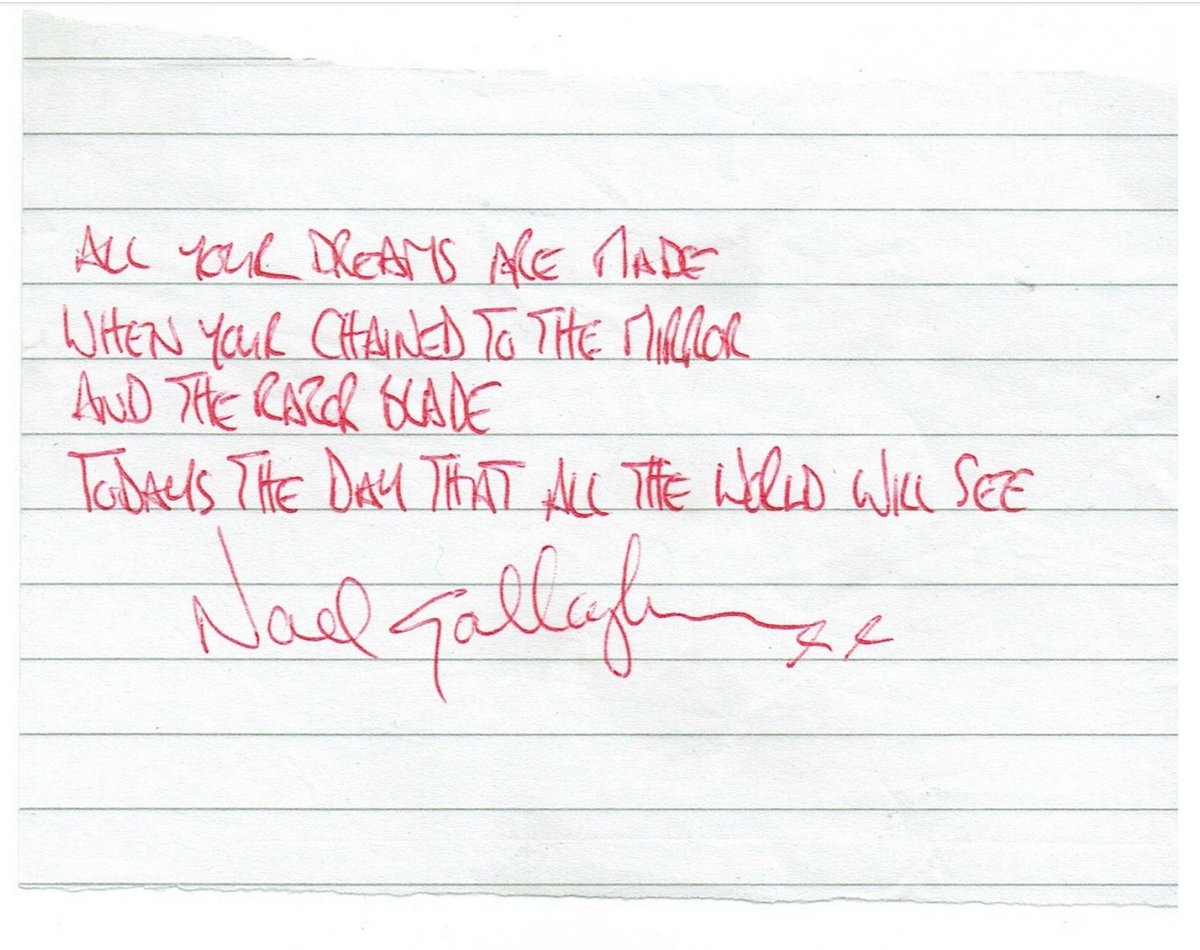 ALL YOUR DREAMS ARE MADE
WHEN YOUR CHAINED TO THE MIRROR
AND THE RAZOR BLADE
TODAYS THE DAY THAT ALL THE WORLD WILL SEE
Noel Gallagher xx